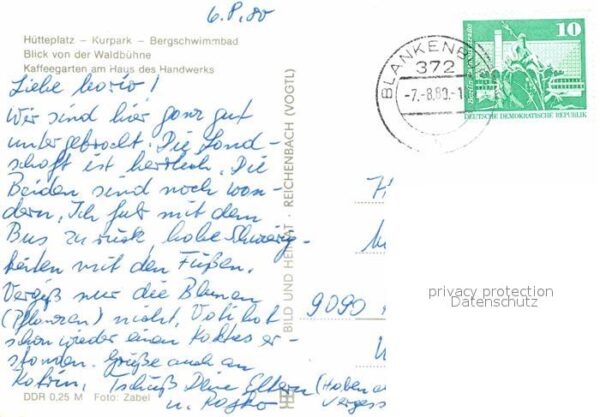 6.8.80
Hütteplatz - Kurpark - Bergschwimmbad
Blick von der Waldbühne
Kaffeegarten am Haus des Handwerks
Liebe
Wir sind hier ganz gut
untergebracht. Die Land-
schaft ist herrlich. Die
Beiden sind noch wan-
dern. Ich fuhr mit dem
Bus zurück, habe Schwierig-
keiten mit den Füßen.
Vergiß nur die Blumen
(Pflanzen) nicht. Vati hat
schon wieder einen Kaktus er-
standen. Grüße auch an
Katrin. Tschuß Deine Eltern (Haben
u. Vergess
DDR 0,25 M Foto: Zabel
BILD UND HEIMAT · REICHENBACH (VOGTL)
BLANKENB
372
-7.-8.80.-1
10
DEUTSCHE DEMOKRATISCHE REPUBLIK
9090
privacy protection
Datenschutz